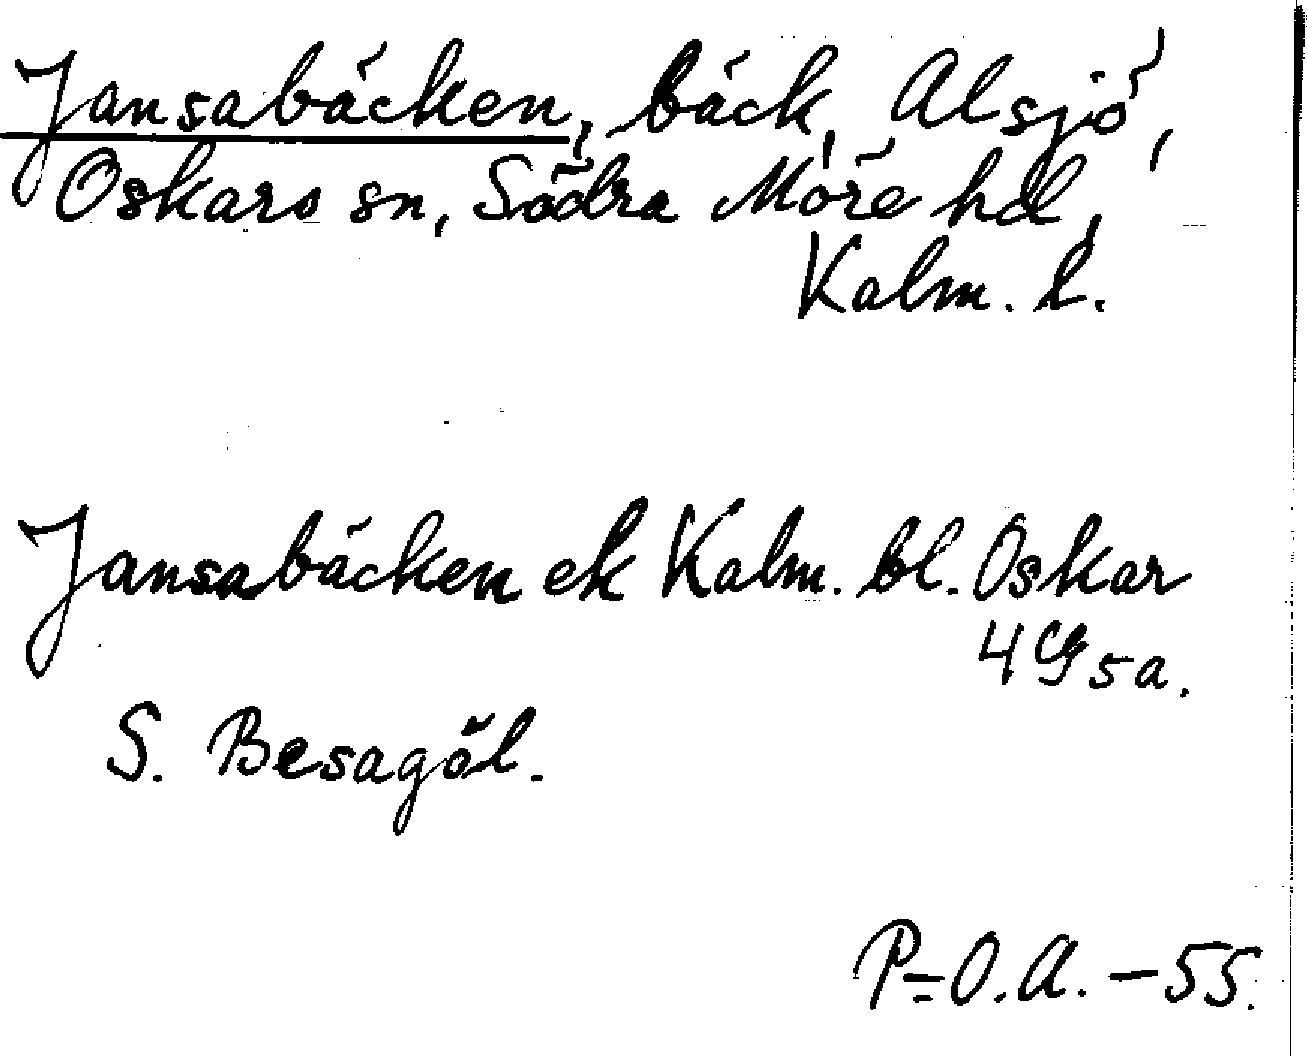 Jansabäcken, bäck, Alsjö,
Oskars sn, Södra Möre hd,
Kalm. l.
Jansabäcken ek Kalm. bl. Oskar
4 G 5 a.
S. Besagöl.
P-O.A. - 55.